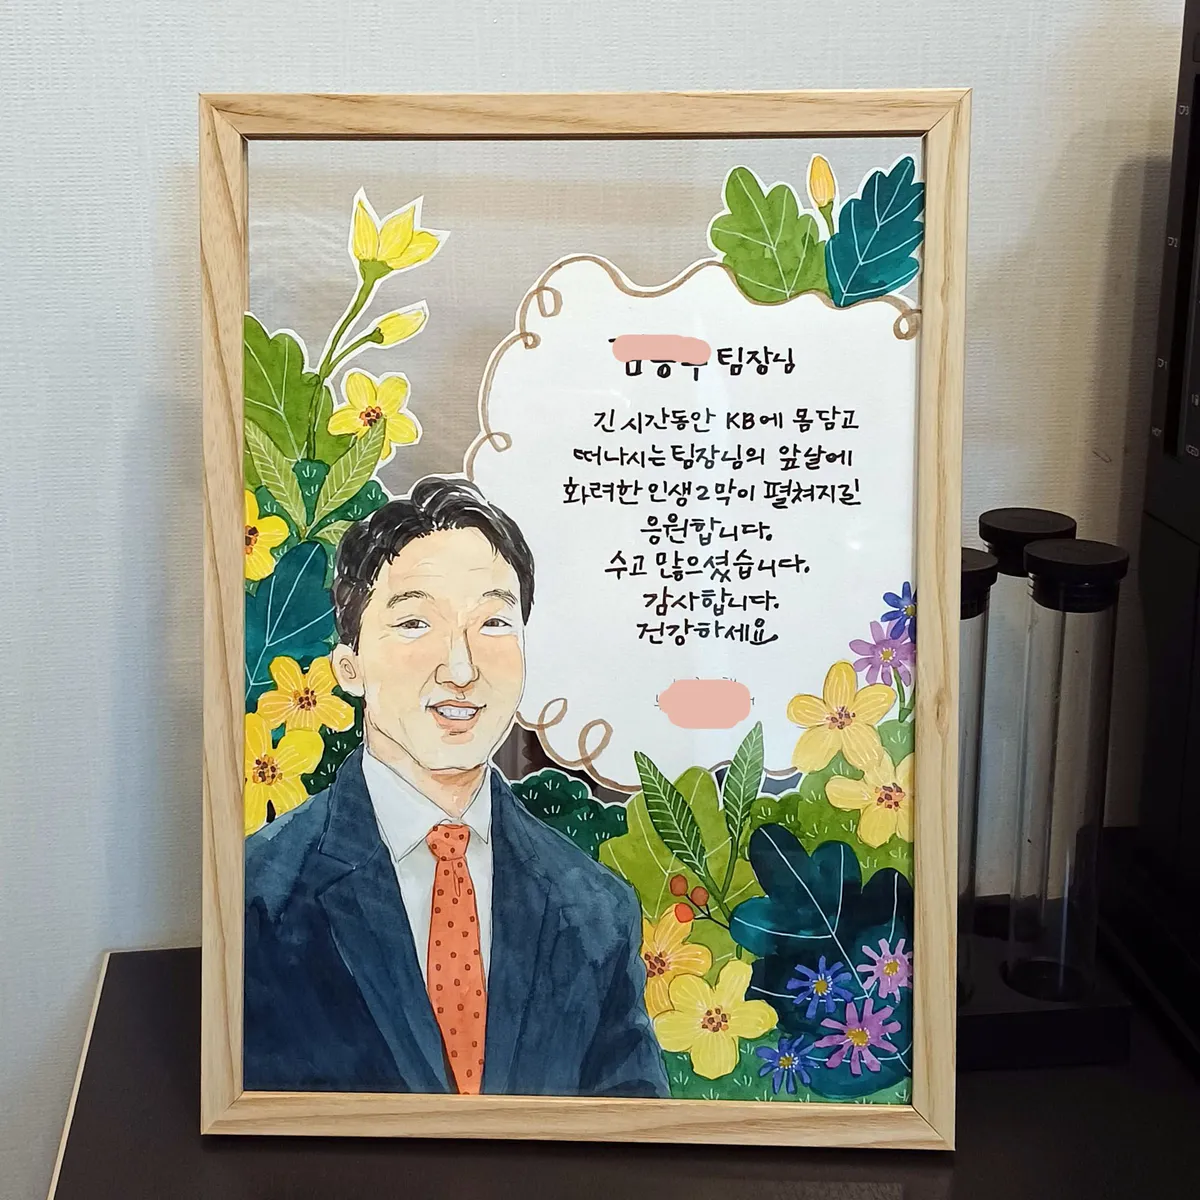 팀장님
긴 시간동안 KB에 몸담고
떠나시는 팀장님의 앞날에
화려한 인생2막이 펼쳐지길
응원합니다.
수고 많으셨습니다.
감사합니다.
건강하세요